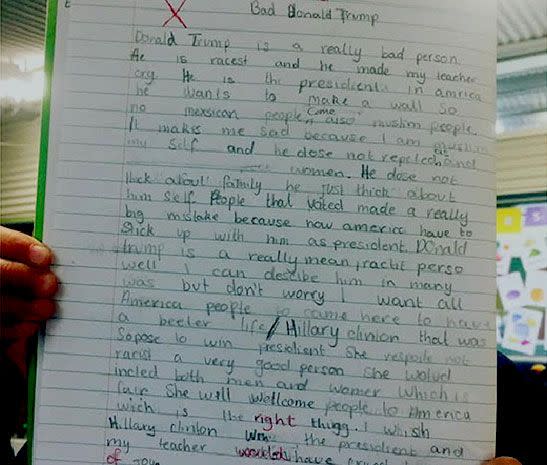 Bad Donald Trump
Donald Trump is a really bad person.
He is racest and he made my teacher
cry. He is the presidient in amrica
he wants to make a wall so
no mexsican people come, also muslim people.
It makes me sad because I am muslim
my self and he dose not and
women. He dose not
thick about family he just thick about
him self. People that voted made a really
big mistake because now americe have to
Sick up with him as president. Donald
trump is a really mean, ractit perso
well I can destibe him in many
was but don't worry I want all
America people to come here to have
a beeter life / Hillary clinion that was
Sopose to win presidient She not
racist a very good person she
incled both men and women which is
fair She will wellcome people to America
wich is the right thing. I whish
Hillary clinton the presidient and
my teacher have
of